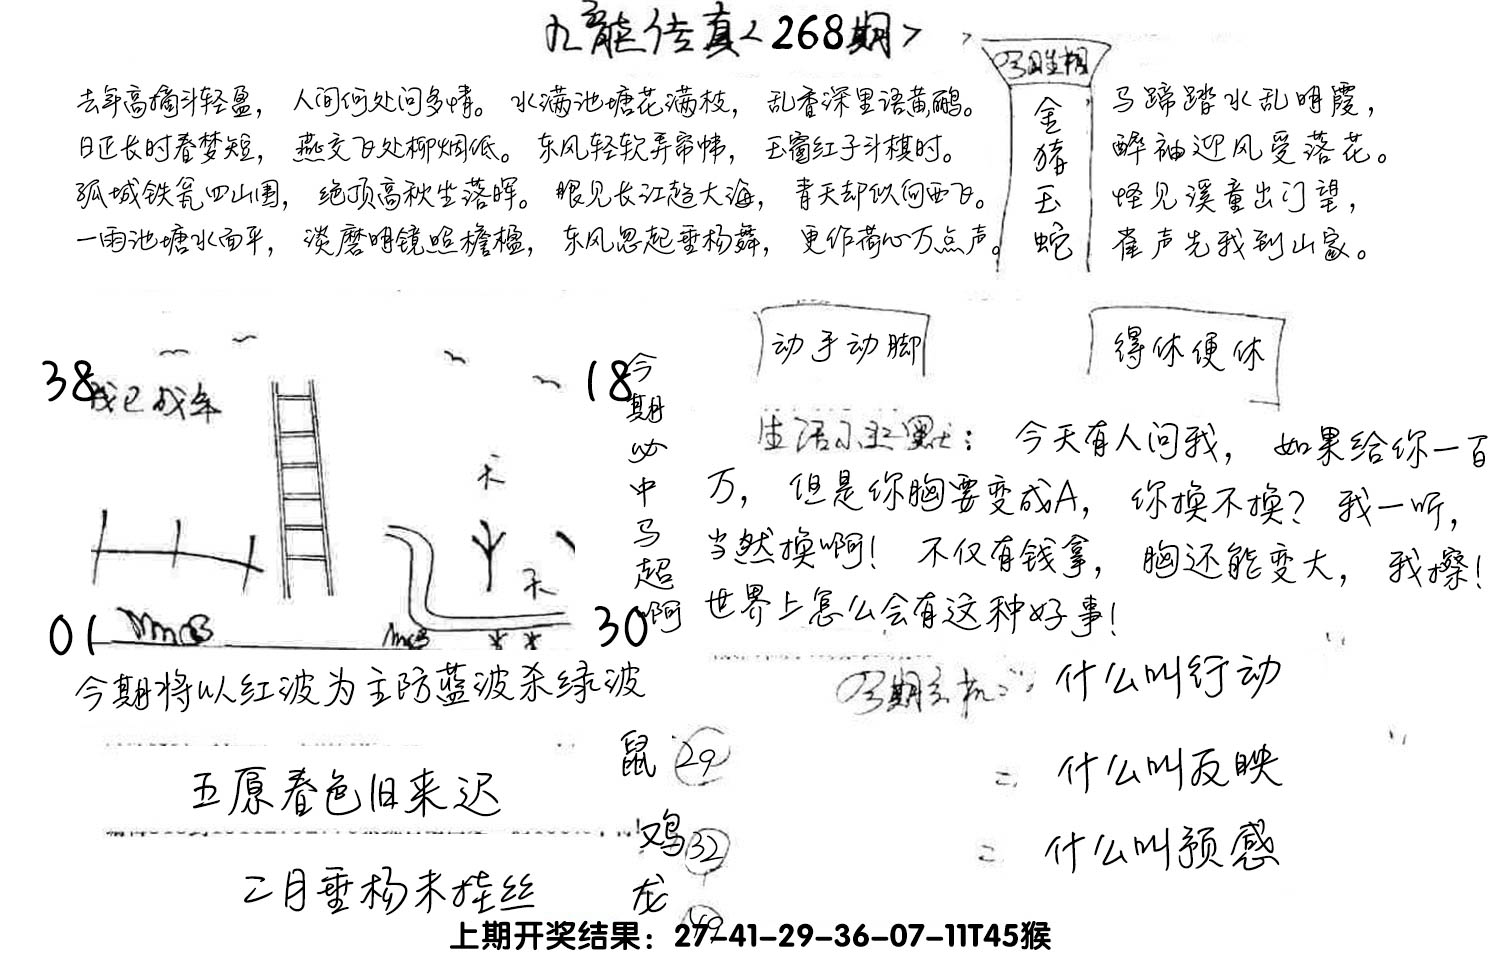 九龙传真<268期>
今日生相
金猪玉蛇
去年高摘斗轻盈，人间何处问多情。水满池塘花满枝，乱香深里语黄鹂。
日正长时春梦短，燕交飞处柳烟低。东风轻软弄帘帏，玉窗红子斗棋时。
孤城铁瓮四山围，绝顶高秋坐落晖。眼见长江趋大海，青天却似向西飞。
一雨池塘水面平，淡磨明镜照檐楹，东风忽起垂杨舞，更作荷心万点声。
马蹄踏水乱明霞，
醉袖迎风受落花。
怪见溪童出门望，
雀声先我到山家。
38
18
01
30
天
天
今期必中马超啊
动手动脚
得休便休
生活小幽默：今天有人问我，如果给你一百
万，但是你胸要变成A，你换不换？我一听，
当然换啊！不仅有钱拿，胸还能变大，我擦！
世界上怎么会有这种好事！
今期将以红波为主防蓝波杀绿波
今期玄机：什么叫行动
什么叫反映
什么叫预感
五原春色旧来迟
二月垂杨未挂丝
鼠 29
鸡 32
龙 49
上期开奖结果：27-41-29-36-07-11T45猴